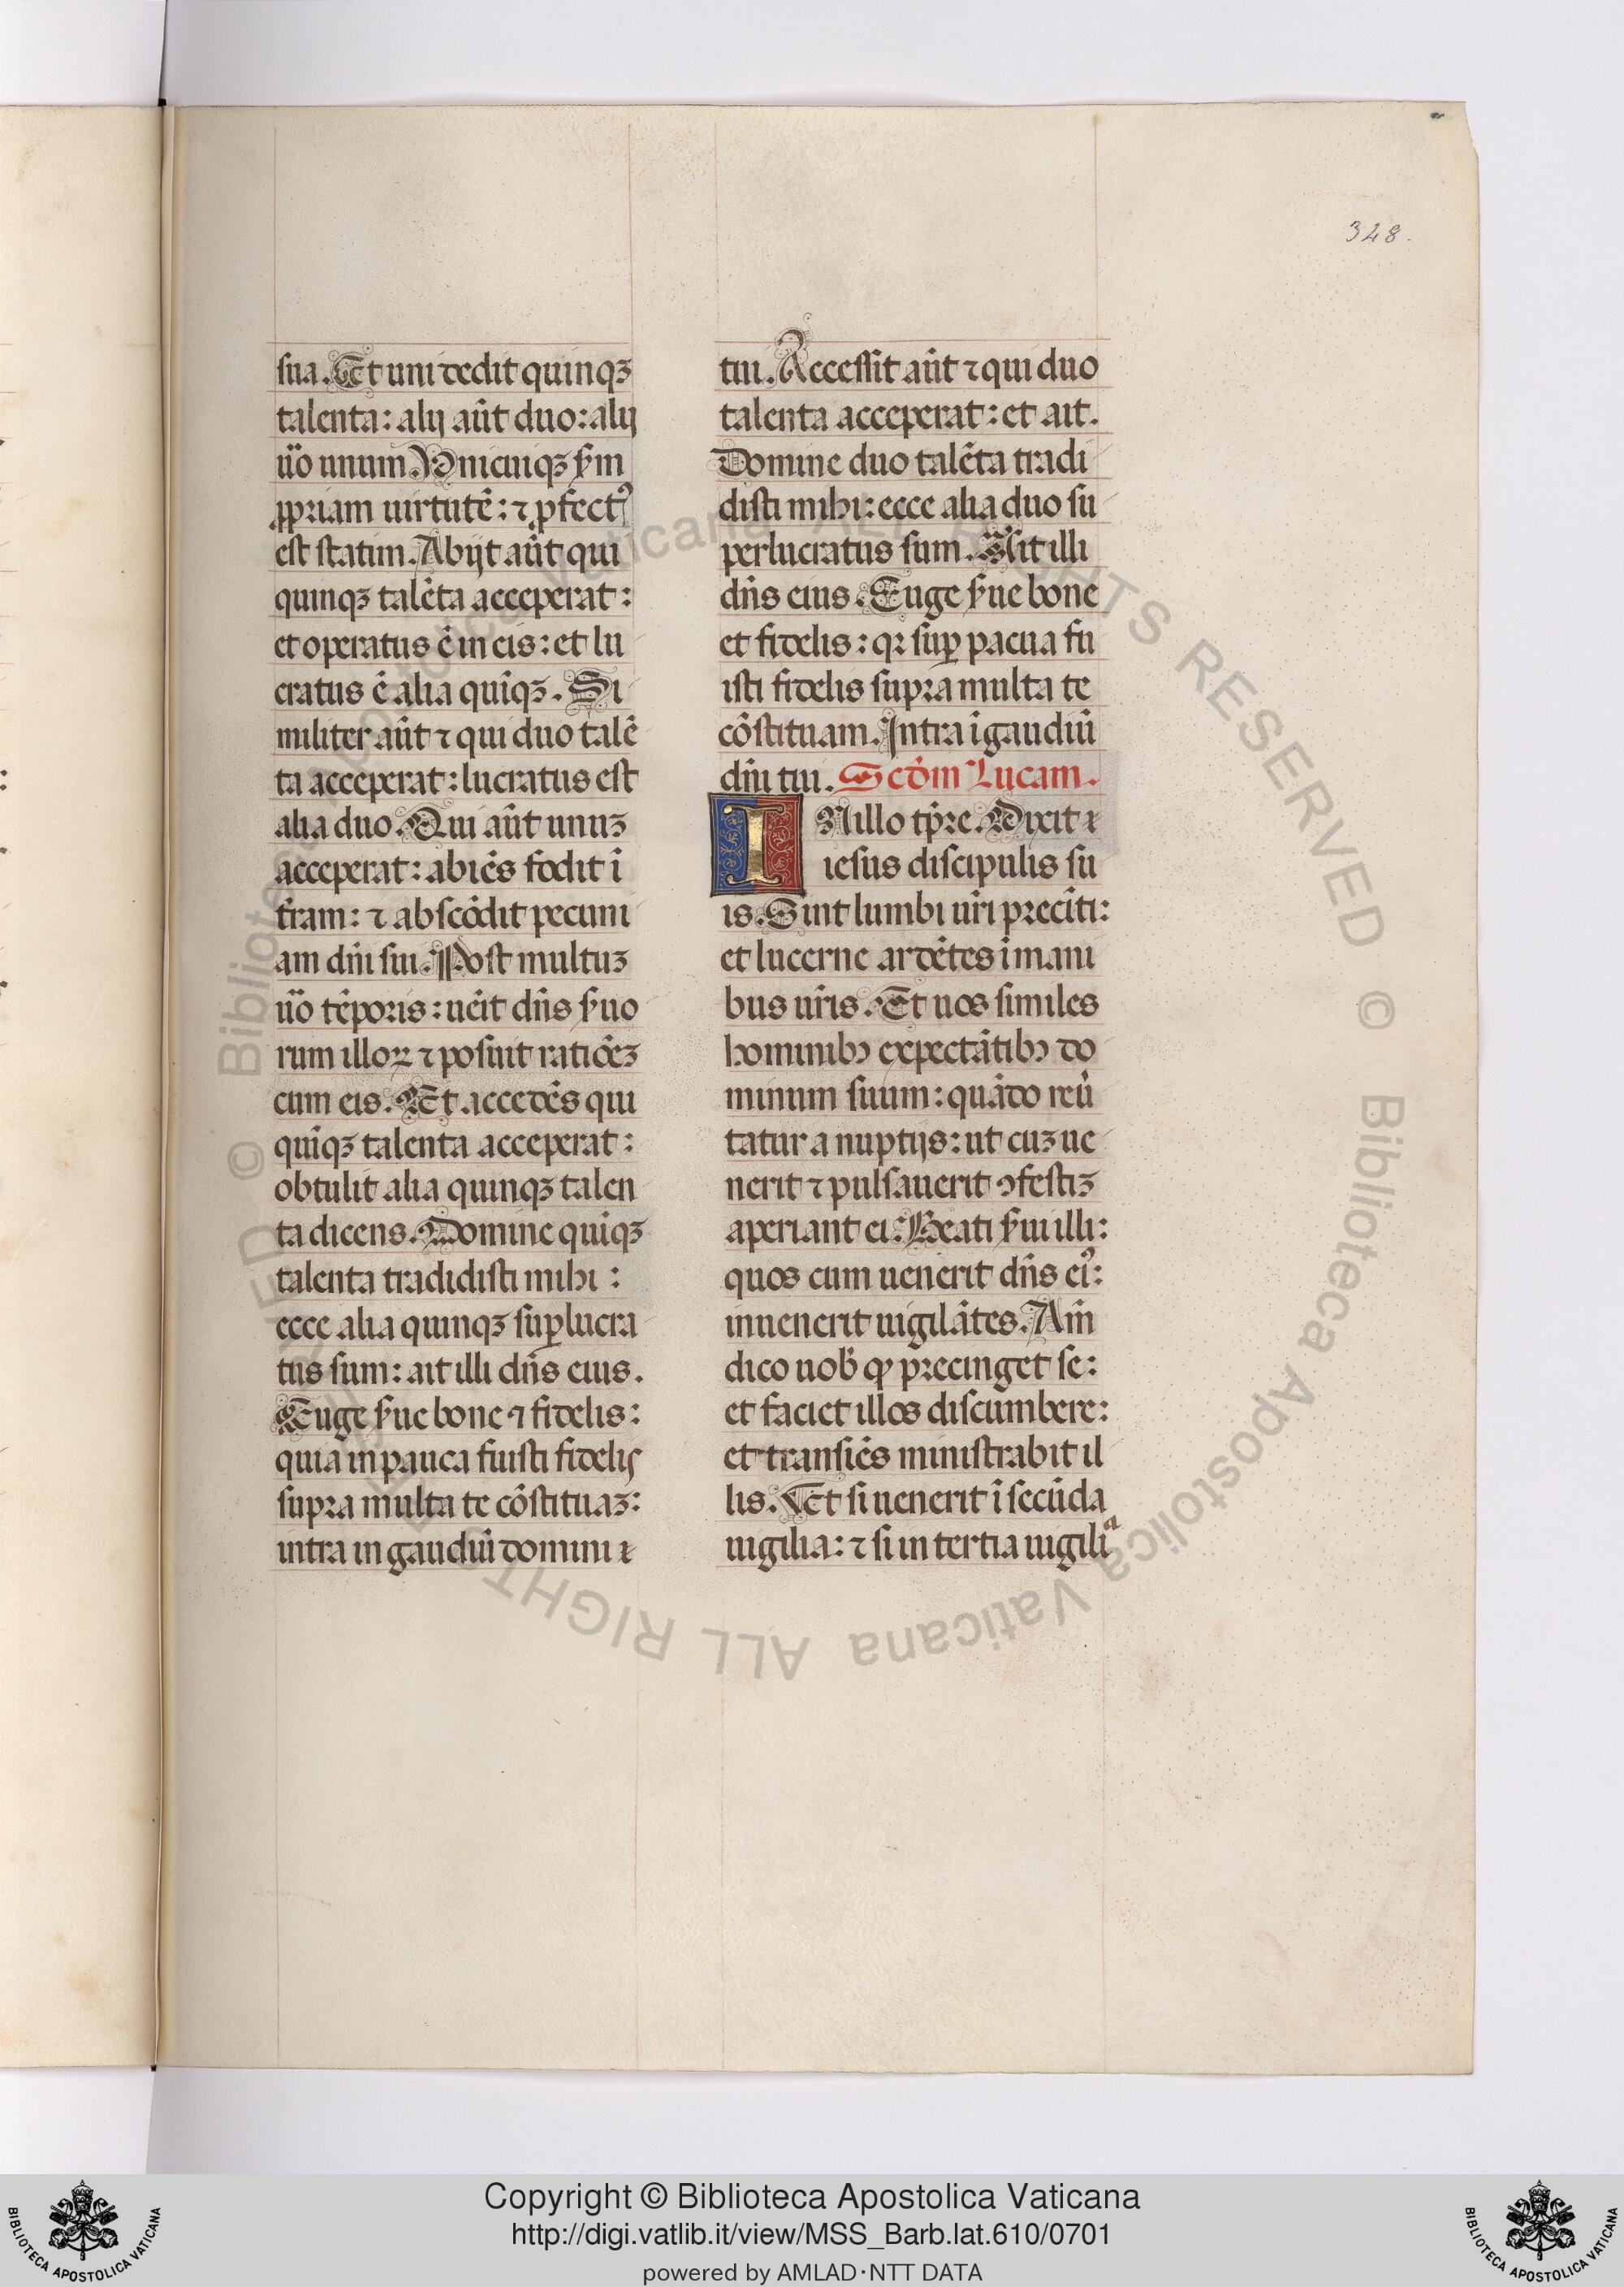 348.
sua. Et uni dedit quinqꝫ
talenta: alij aūt duo: alij
ũo unum. Unicuiqꝫ s̃m
ꝓpriam uirtutē: ⁊ ꝓfectꝰ
est statim. Abijt aũt qui
quinqꝫ talēta acceperat:
et operatus ē in eis: et lu
cratus ē alia quīqꝫ. Si
militer aūt ⁊ qui duo talē
ta acceperat: lucratus est
alia duo. Qui aūt unuꝫ
acceperat: abiēs fodit ī
t̃ram: ⁊ abscōdit pecuni
am dñi sui. Post multuꝫ
ũo tēporis: uēit dñs s̃uo
rum illoꝝ ⁊ posuit ratiōeꝫ
cum eis. Et accedēs qui
quīqꝫ talenta acceperat:
obtulit alia quinqꝫ talen
ta dicens. Domine quīqꝫ
talenta tradidisti mihi:
ecce alia quinqꝫ suꝑlucra
tus sum: ait illi dñs eius.
Euge s̃ue bone ⁊ fidelis:
quia in pauca fuisti fidelis
supra multa te cōstituaꝫ:
intra in gaudiū domini
tui. Accessit aūt ⁊ qui duo
talenta acceperat: et ait.
Domine duo talēta tradi
disti mihi: ecce alia duo su
perlucratus sum. Ait illi
dñs eius. Euge s̃ue bone
et fidelis: qꝛ suꝑ pacua fu
isti fidelis supra multa te
cōstituam. Intra ī gaudiū
dñi tui. Scd̃m Lucam.
IN illo tp̃re. Dixit
iesus discipulis su
is. Sint lumbi ur̃i precīti:
et lucerne ardētes ī mani
bus ur̃is. Et uos similes
hominibꝰ expectātibꝰ do
minum suum: quādo reũ
tatur a nuptijs: ut cuꝫ ue
nerit ⁊ pulsauerit ꝯfestiꝫ
aperiant ei. Beati s̃ui illi:
quos cum uenerit dñs eiꝰ:
inuenerit uigilātes. Am̃
dico uob̃ ꝙ precinget se:
et faciet illos discumbere:
et transiēs ministrabit il
lis. Et si uenerit ī secūda
uigilia: ⁊ si in tertia uigiliª
© Biblioteca Apostolica Vaticana ALL RIGHTS RESERVED © Biblioteca Apostolica Vaticana ALL RIGHTS RESERVED
Copyright © Biblioteca Apostolica Vaticana
http://digi.vatlib.it/view/MSS_Barb.lat.610/0701
powered by AMLAD·NTT DATA
BIBLIOTECA APOSTOLICA VATICANA
BIBLIOTECA APOSTOLICA VATICANA